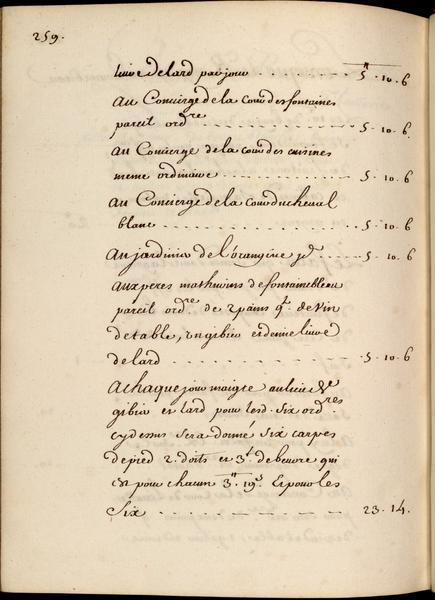 259.
livre de lard par jour . . . . . . . . 5ᴴ. 10. 6
au Concierge de la cour des fontaines
pareil ordre . . . . . . . . 5. 10. 6.
au Concierge de la cour des cuisines
meme ordinaire . . . . . . . . 5. 10. 6
au Concierge de la cour du cheval
blanc . . . . . . . . 5. 10. 6
au jardinier de l'orangerie jd. . . . . . 5. 10. 6
aux peres mathurins de fontainebleau
pareil ordre de 2 pains qt. de vin
de table, un gibier et demie livre
de lard . . . . . . . . 5. 10. 6
a chaque jour maigre au lieu de
gibier et lard pour lesd. six ordres
cy dessus sera donné six carpes
de pied 2. doits et 3# de beurre qui
est pour chacun 3ᴴ. 19s. Et pour les
Six . . . . . . . . 23. 14.